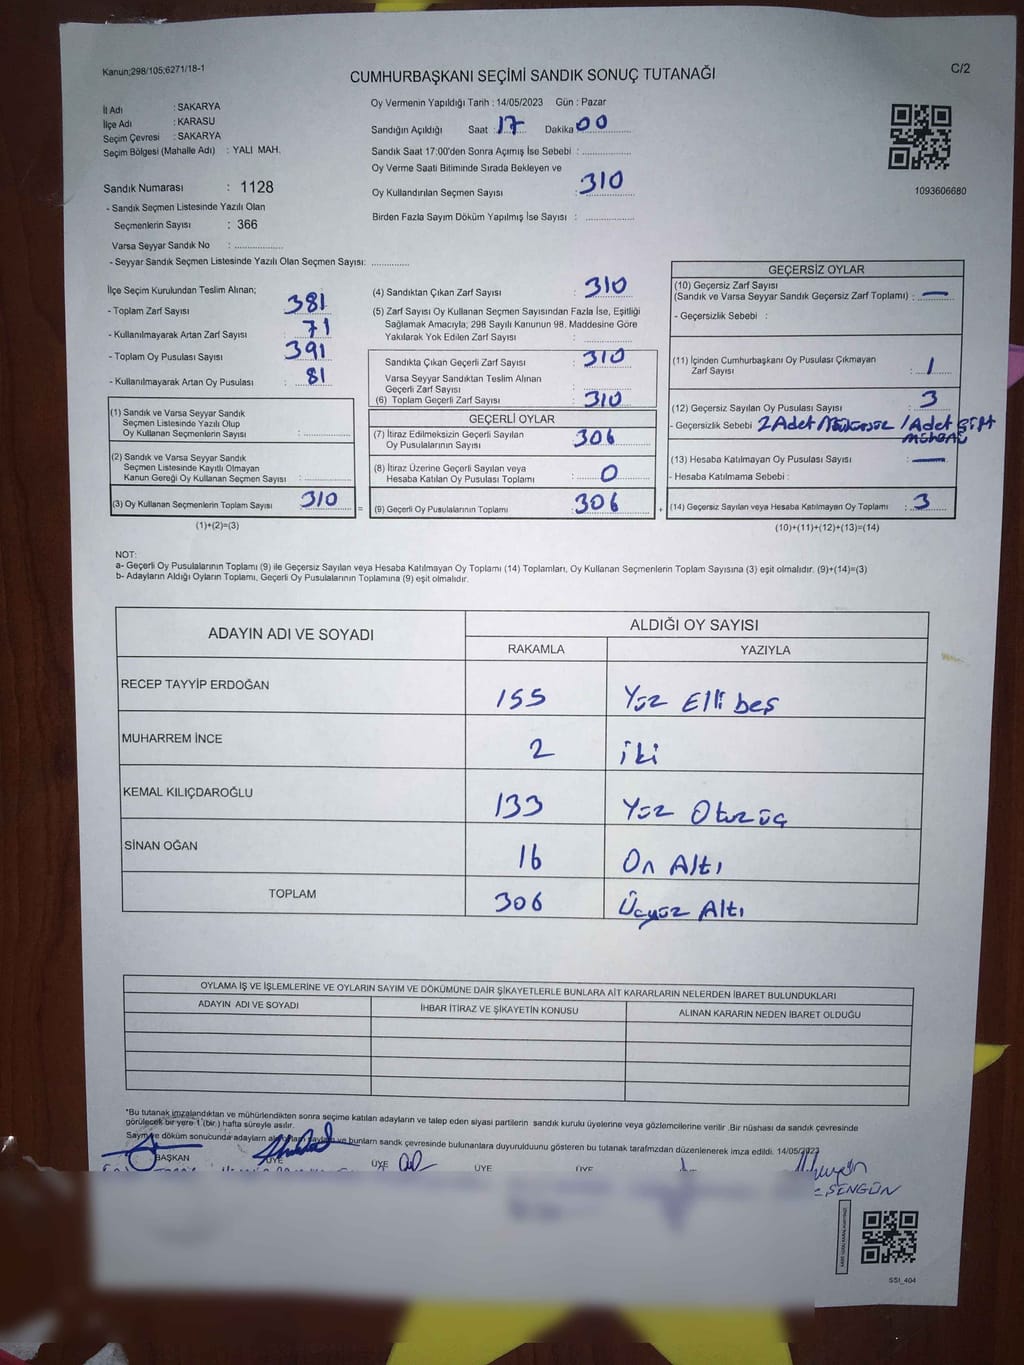 Kanun;298/105;6271/18-1
C/2
CUMHURBAŞKANI SEÇİMİ SANDIK SONUÇ TUTANAĞI
İl Adı : SAKARYA
İlçe Adı : KARASU
Seçim Çevresi : SAKARYA
Seçim Bölgesi (Mahalle Adı) : YALI MAH.
Sandık Numarası : 1128
- Sandık Seçmen Listesinde Yazılı Olan
Seçmenlerin Sayısı : 366
Varsa Seyyar Sandık No : ................
- Seyyar Sandık Seçmen Listesinde Yazılı Olan Seçmen Sayısı: ............
Oy Vermenin Yapıldığı Tarih : 14/05/2023 Gün : Pazar
Sandığın Açıldığı Saat : 17 Dakika 00
Sandık Saat 17:00'den Sonra Açımış İse Sebebi : ................
Oy Verme Saati Bitiminde Sırada Bekleyen ve
Oy Kullandırılan Seçmen Sayısı : 310
Birden Fazla Sayım Döküm Yapılmış İse Sayısı : ................
1093606680
İlçe Seçim Kurulundan Teslim Alınan;
- Toplam Zarf Sayısı : 381
- Kullanılmayarak Artan Zarf Sayısı : 71
- Toplam Oy Pusulası Sayısı : 391
- Kullanılmayarak Artan Oy Pusulası : 81
(1) Sandık ve Varsa Seyyar Sandık
Seçmen Listesinde Yazılı Olup
Oy Kullanan Seçmenlerin Sayısı : ................
(2) Sandık ve Varsa Seyyar Sandık
Seçmen Listesinde Kayıtlı Olmayan
Kanun Gereği Oy Kullanan Seçmen Sayısı : ................
(3) Oy Kullanan Seçmenlerin Toplam Sayısı : 310
(1)+(2)=(3)
=
(4) Sandıktan Çıkan Zarf Sayısı : 310
(5) Zarf Sayısı Oy Kullanan Seçmen Sayısından Fazla İse, Eşitliği
Sağlamak Amacıyla; 298 Sayılı Kanunun 98. Maddesine Göre
Yakılarak Yok Edilen Zarf Sayısı : ................
Sandıkta Çıkan Geçerli Zarf Sayısı : 310
Varsa Seyyar Sandıktan Teslim Alınan
Geçerli Zarf Sayısı : ................
(6) Toplam Geçerli Zarf Sayısı : 310
GEÇERLİ OYLAR
(7) İtiraz Edilmeksizin Geçerli Sayılan
Oy Pusulalarının Sayısı : 306
(8) İtiraz Üzerine Geçerli Sayılan veya
Hesaba Katılan Oy Pusulası Toplamı : 0
(9) Geçerli Oy Pusulalarının Toplamı : 306
+
GEÇERSİZ OYLAR
(10) Geçersiz Zarf Sayısı
(Sandık ve Varsa Seyyar Sandık Geçersiz Zarf Toplamı) : —
- Geçersizlik Sebebi :
(11) İçinden Cumhurbaşkanı Oy Pusulası Çıkmayan
Zarf Sayısı : 1
(12) Geçersiz Sayılan Oy Pusulası Sayısı : 3
- Geçersizlik Sebebi 2 Adet Mühürsüz 1 Adet Çift
(13) Hesaba Katılmayan Oy Pusulası Sayısı : —
- Hesaba Katılmama Sebebi :
(14) Geçersiz Sayılan veya Hesaba Katılmayan Oy Toplamı : 3
(10)+(11)+(12)+(13)=(14)
NOT:
a- Geçerli Oy Pusulalarının Toplamı (9) ile Geçersiz Sayılan veya Hesaba Katılmayan Oy Toplamı (14) Toplamları, Oy Kullanan Seçmenlerin Toplam Sayısına (3) eşit olmalıdır. (9)+(14)=(3)
b- Adayların Aldığı Oyların Toplamı, Geçerli Oy Pusulalarının Toplamına (9) eşit olmalıdır.
ADAYIN ADI VE SOYADI ALDIĞI OY SAYISI
RAKAMLA YAZIYLA
RECEP TAYYİP ERDOĞAN 155 Yüz Elli beş
MUHARREM İNCE 2 iki
KEMAL KILIÇDAROĞLU 133 Yüz Otuzüç
SİNAN OĞAN 16 On Altı
TOPLAM 306 Üçyüz Altı
OYLAMA İŞ VE İŞLEMLERİNE VE OYLARIN SAYIM VE DÖKÜMÜNE DAİR ŞİKAYETLERLE BUNLARA AİT KARARLARIN NELERDEN İBARET BULUNDUKLARI
ADAYIN ADI VE SOYADI İHBAR İTİRAZ VE ŞİKAYETİN KONUSU ALINAN KARARIN NEDEN İBARET OLDUĞU
*Bu tutanak imzalandıktan ve mühürlendikten sonra seçime katılan adayların ve talep eden siyasi partilerin sandık kurulu üyelerine veya gözlemcilerine verilir .Bir nüshası da sandık çevresinde
görülecek bir yere 1 (bir ) hafta süreyle asılır.
Sayım ve döküm sonucunda adayların ve bunların sandık çevresinde bulunanlara duyurulduunu gösteren bu tutanak tarafmzdan düzenlenerek imza edildi. 14/05/2023
BAŞKAN ÜYE ÜYE ÜYE ÜYE
ŞENGÜN
SSI_404